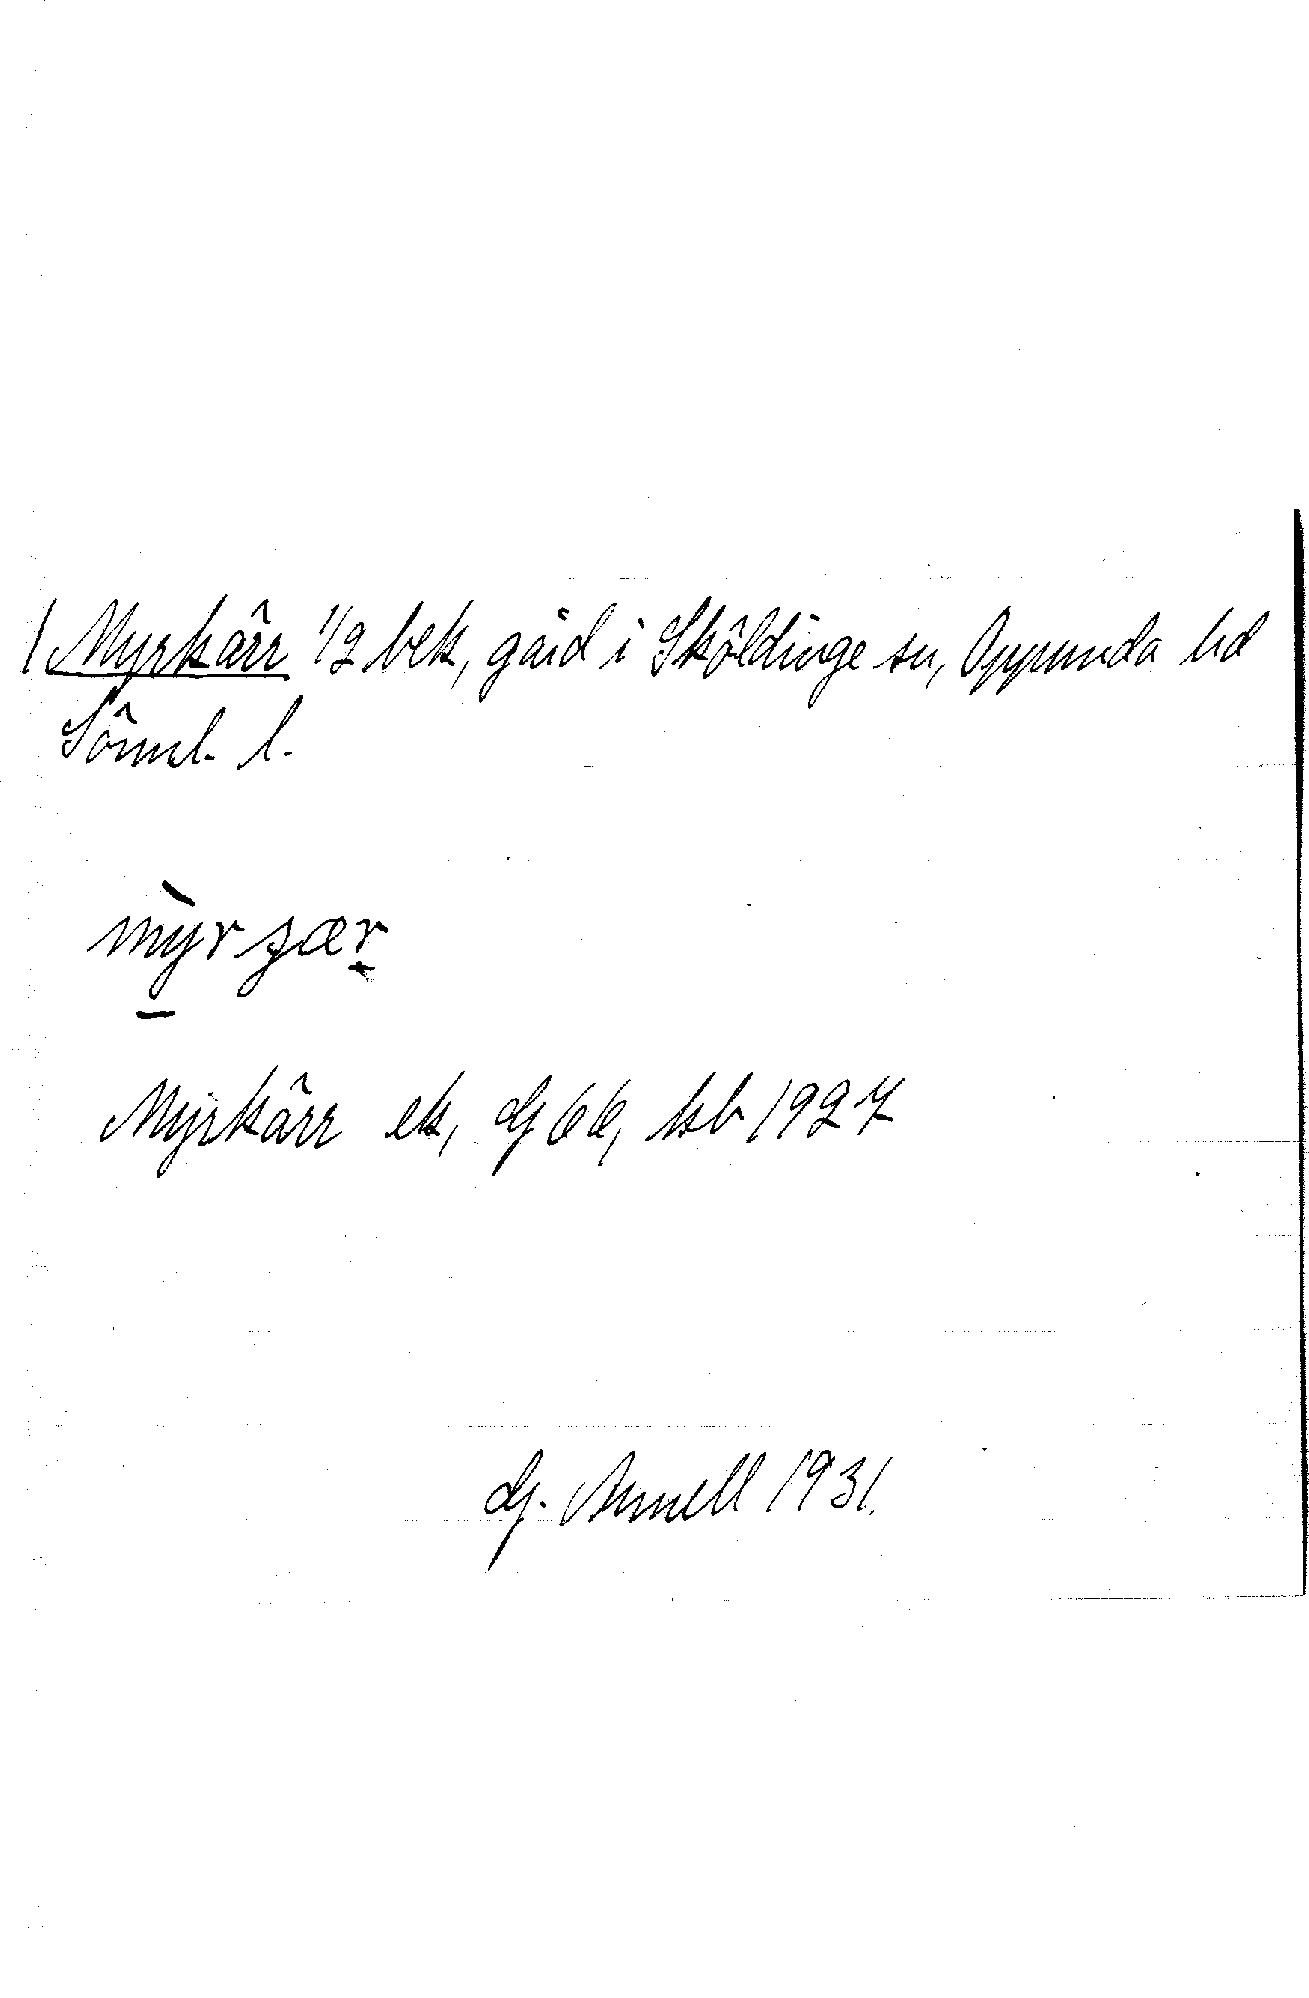 Myrkärr 1/2 bek, gård i Sköldinge sn, Oppunda hd
Söml. l.
mỳr ɟær
Myrkärr ek, Gf 66, hsb 1927
G. Annell 1931.